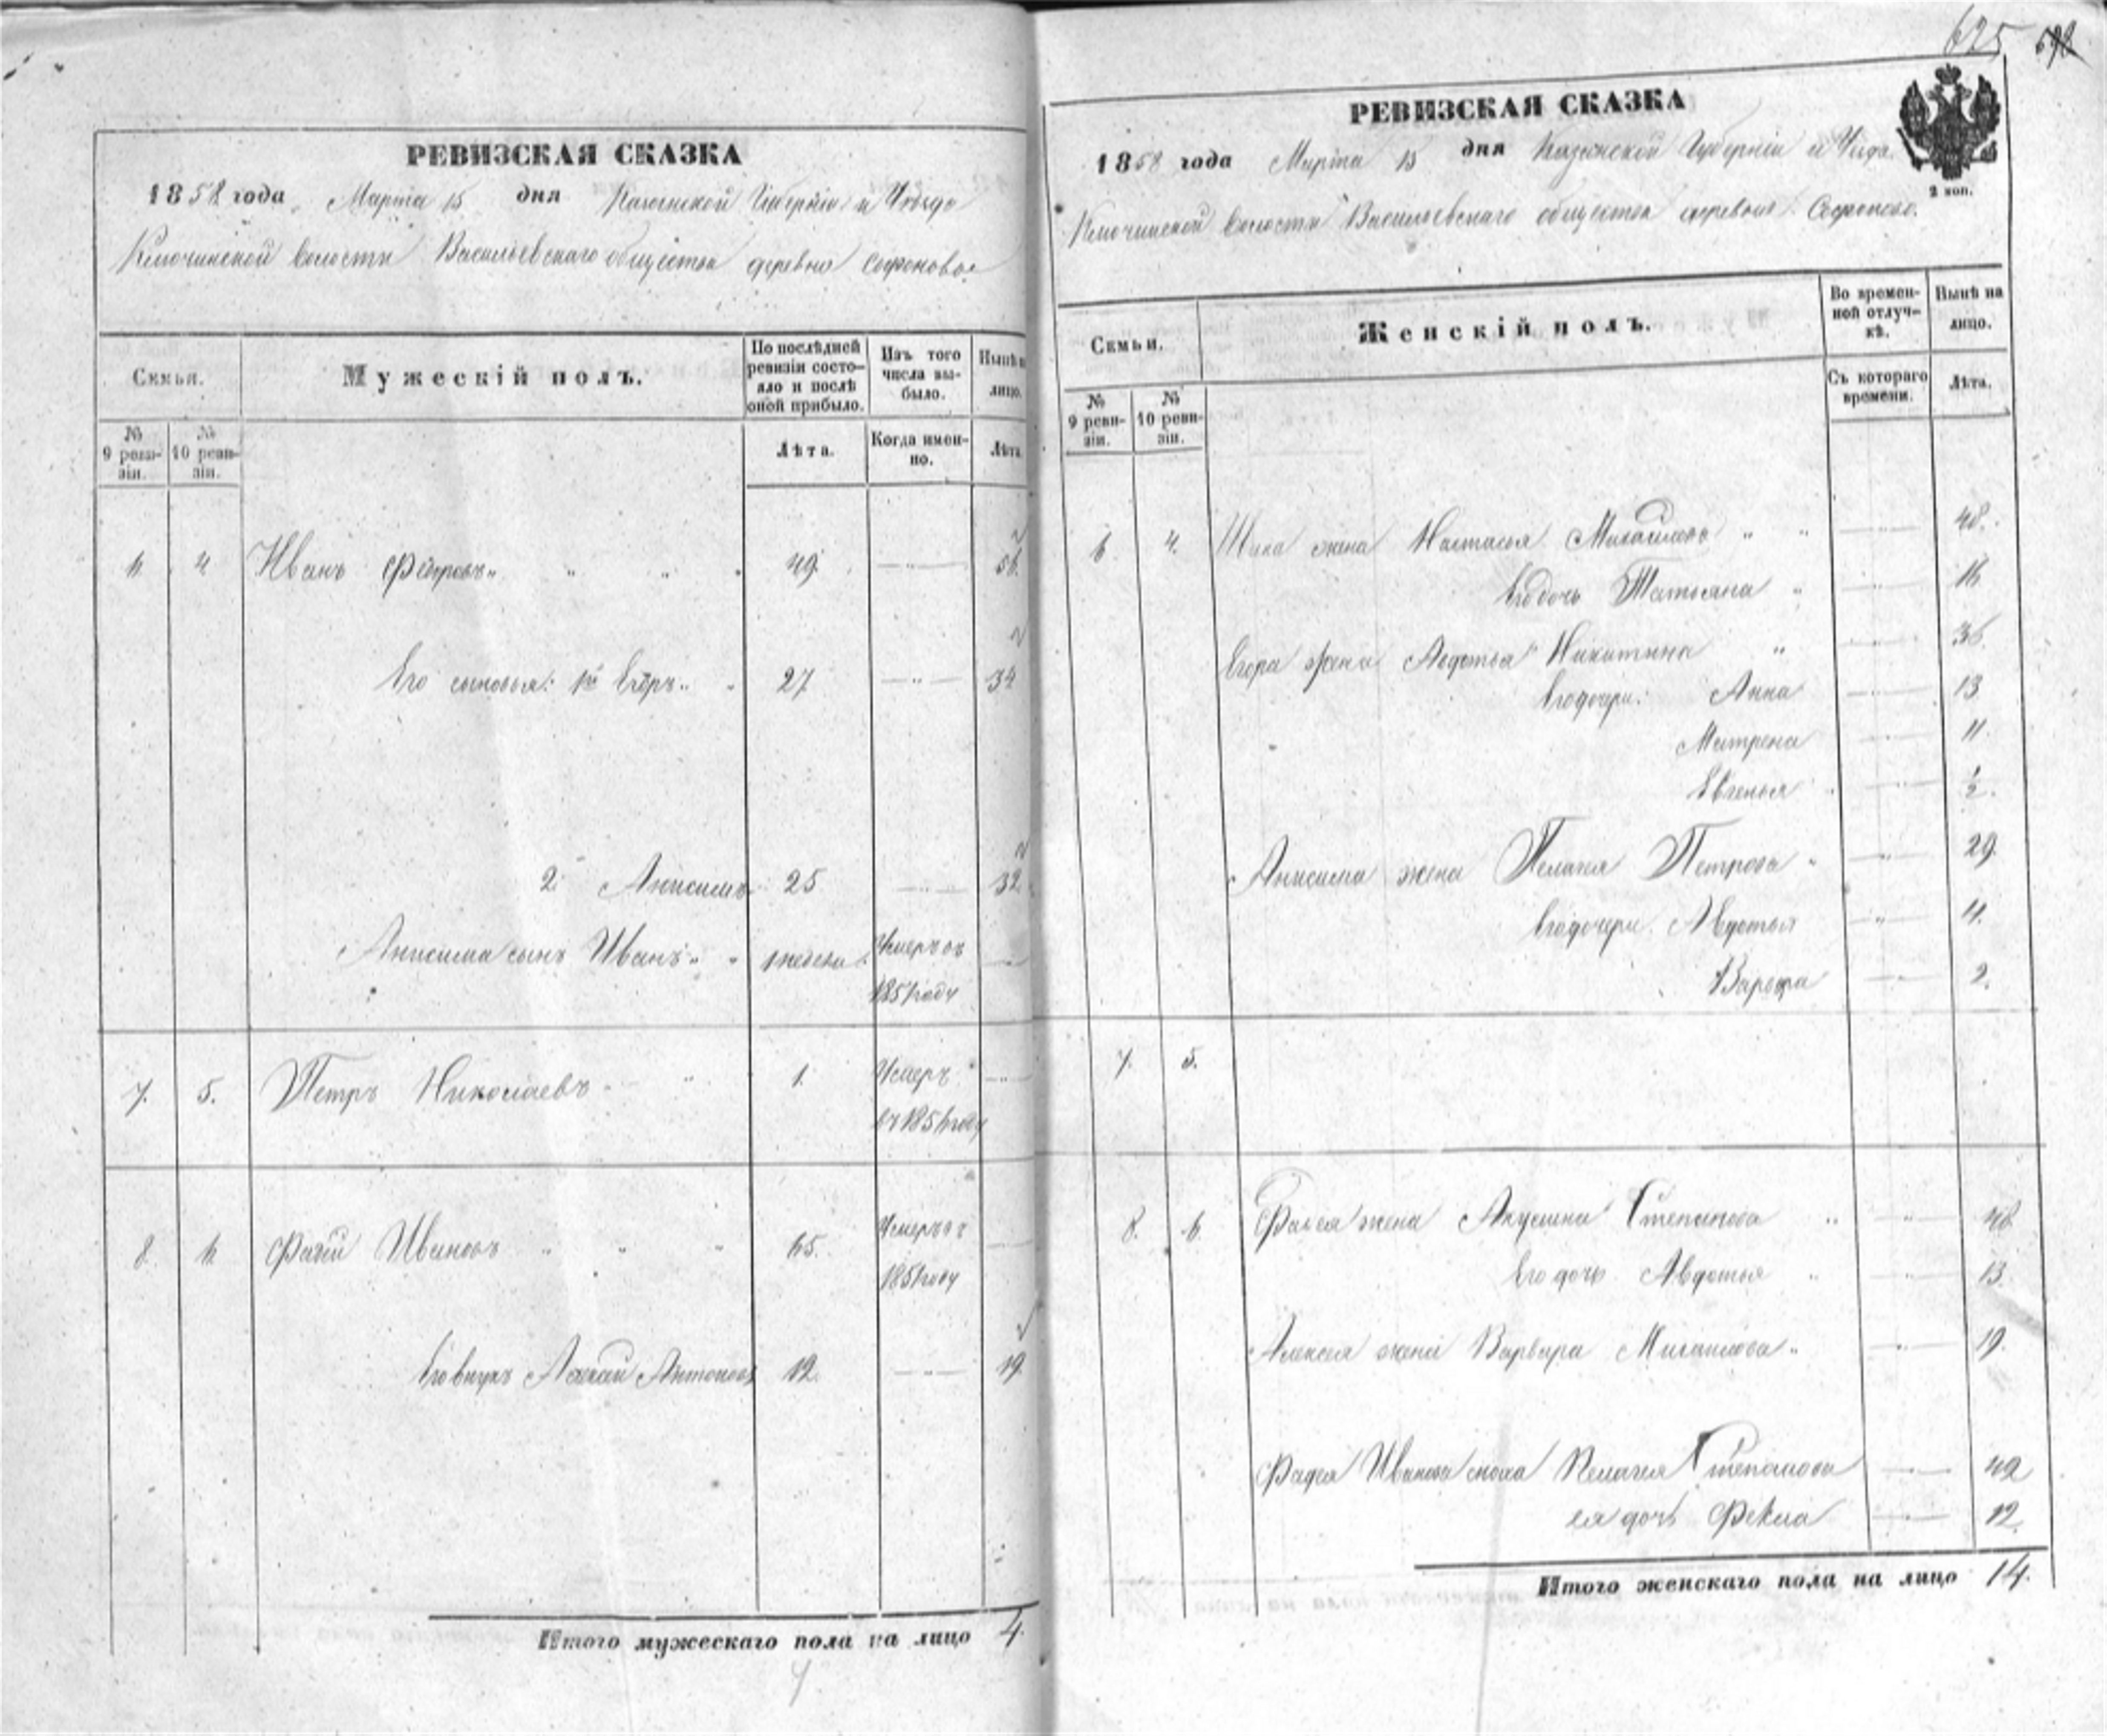 РЕВИЗСКАЯ СКАЗКА
1858 года Марта 15 дня Казанской Губерніи и Уѣзда
Ключинской волости Васильевскаго общества деревни Софоновой
Семья. Мужескій полъ. По послѣдней ревизіи состояло и послѣ оной прибыло. Изъ того числа выбыло. Нынѣ на лицо.
№ 9 ревизіи. № 10 ревизіи. Лѣта. Когда именно. Лѣта.
6. 4. Иванъ 49. 56.
Его сыновья: 1й Егоръ 27 34
2й Анисимъ 25 32
Анисима сынъ Иванъ 1 недели Умеръ въ 1851 году
7. 5. Петръ Николаевъ 1. Умеръ въ 185 году
8. 6. Фадѣй Ивановъ 65. Умеръ въ 1851 году
Его внукъ Антоновъ 12. 19.
Итого мужескаго пола на лицо 4.
625
РЕВИЗСКАЯ СКАЗКА
1858 года Марта 15 дня Казанской Губерніи и Уѣзда
2 коп.
Ключинской волости Васильевскаго общества деревни Софоновой.
Семьи. Женскій полъ. Во временной отлучкѣ. Нынѣ на лицо.
№ 9 ревизіи. № 10 ревизіи. Съ котораго времени. Лѣта.
6. 4. Ивана жена Настасья Михайлова 48.
Его дочь Татьяна 16
Егора жена Авдотья Никитина 36.
Его дочери: Анна 13
Матрена 11.
Евгенья ½.
Анисима жена Пелагея Петрова 29.
Его дочери Авдотья 11.
2.
7. 5.
8. 6. Фадея жена Акулина Степанова 48
Его дочь Авдотья 13.
Алексея жена Варвара Михайлова 19.
Фадея Иванова сноха Пелагея Степанова 42
ея дочь Фекла 12.
Итого женскаго пола на лицо 14.